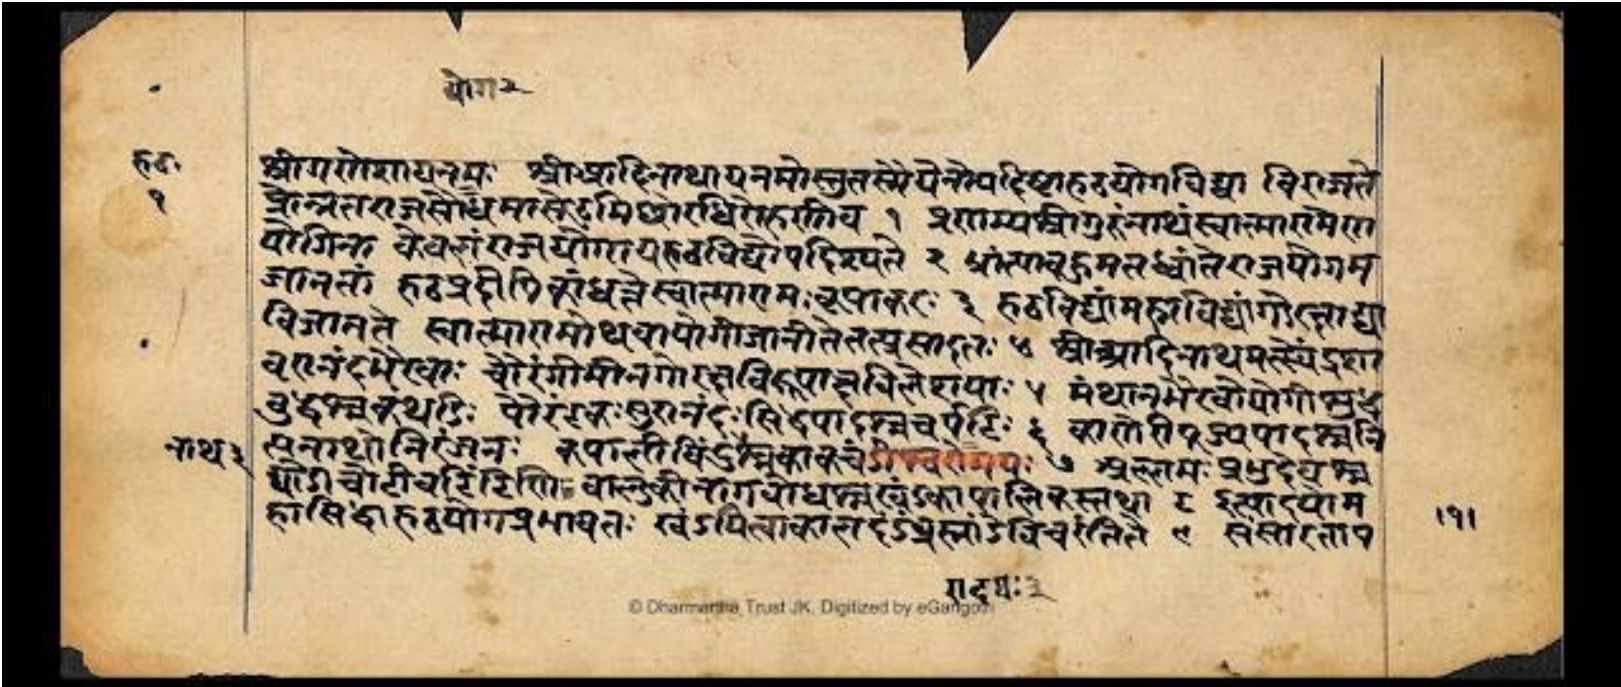 योग२
हठ॰
१
श्रीगणेशायनमः श्रीआदिनाथायनमोस्तुतस्मैयेनोपदिष्टाहठयोगविद्या विराजते
प्रोन्नतराजसौधमारोढुमिछोरधिरोहणीव १ प्रणम्यश्रीगुरुंनाथंस्वात्मारामेण
योगिना केवलंराजयोगायहठविद्योपदिश्यते २ भ्रांत्याबहुमतध्वांतेराजयोगम
जानतां हठप्रदीपिकांधत्तेस्वात्मारामःकृपाकरः ३ हठविद्यांमहाविद्यांगोरक्षाद्या
विजानते स्वात्मारामोथवायोगीजानीतेतत्प्रसादतः ४ श्रीआदिनाथमत्स्येंद्रशा
वरानंदभैरवाः चौरंगीमीनगोरक्षविरूपाक्षबिलेशयाः ५ मंथानभैरवोयोगीसिद्ध
बुद्धश्चकंथडिः पौरंटकःसुरानंदःसिद्धपादश्चचर्पटिः ६ काणेरीपूज्यपादश्चनि
नाथ३ त्यनाथोनिरंजनः कपालीबिंदुनाथश्चकाकचंडीश्वरोमयः ७ अल्लामःप्रभुदेवश्च
घोडाचोलीचटिंटिणिः वासुकीनागबोधश्चखंडकापालिकस्तथा ८ इत्यादयोम
हासिद्धाहठयोगप्रभावतः खंडयित्वाकालदंडंब्रह्मांडेविचरंतिते ९ संसारताप
।१।
रादयः२
© Dharmartha Trust JK. Digitized by eGangotri